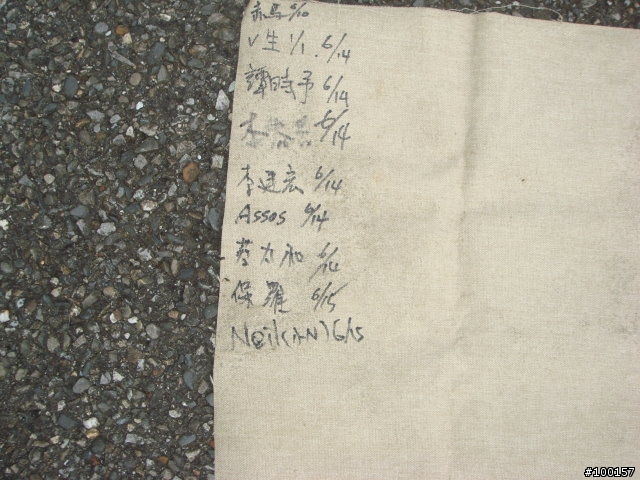 赤馬 6/10
V生 1/1. 6/14
譚時予 6/14
李 6/14
李廷宏 6/14
Assos 6/14
力和 6/14
保羅 6/15
Neil(AN) 6/15
#100157